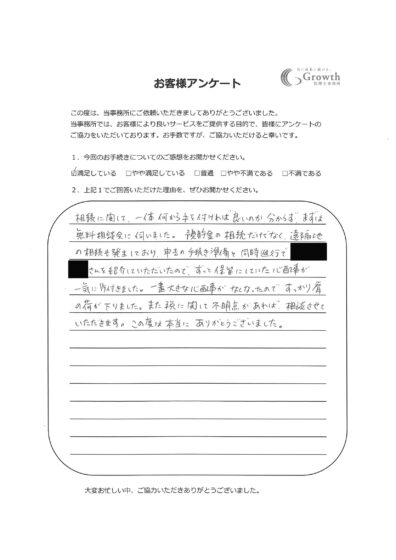 Growth
税理士事務所
お客様アンケート
この度は、当事務所にご依頼いただきましてありがとうございました。
当事務所では、お客様により良いサービスをご提供する目的で、皆様にアンケートの
ご協力をいただいております。お手数ですが、ご協力いただけると幸いです。
1．今回のお手続きについてのご感想をお聞かせください。
☑満足している　□やや満足している　□普通　□やや不満である　□不満である
2．上記1でご回答いただけた理由を、ぜひお聞かせください。
相続に関して、一体何から手を付ければ良いのか分からず まずは
無料相談会に伺いました。預貯金の相続だけでなく、遠隔地
の相続も発生しており、申告の手続き準備と同時進行で
さんを紹介していただいたので、ずっと保留にしていた心配事が
一気に片付きました。一番大きな心配事がなくなったので すっかり肩
の荷が下りました。また税に関して不明点があれば 相談させて
いただきます。この度は本当に ありがとうございました。
大変お忙しい中、ご協力いただきありがとうございました。